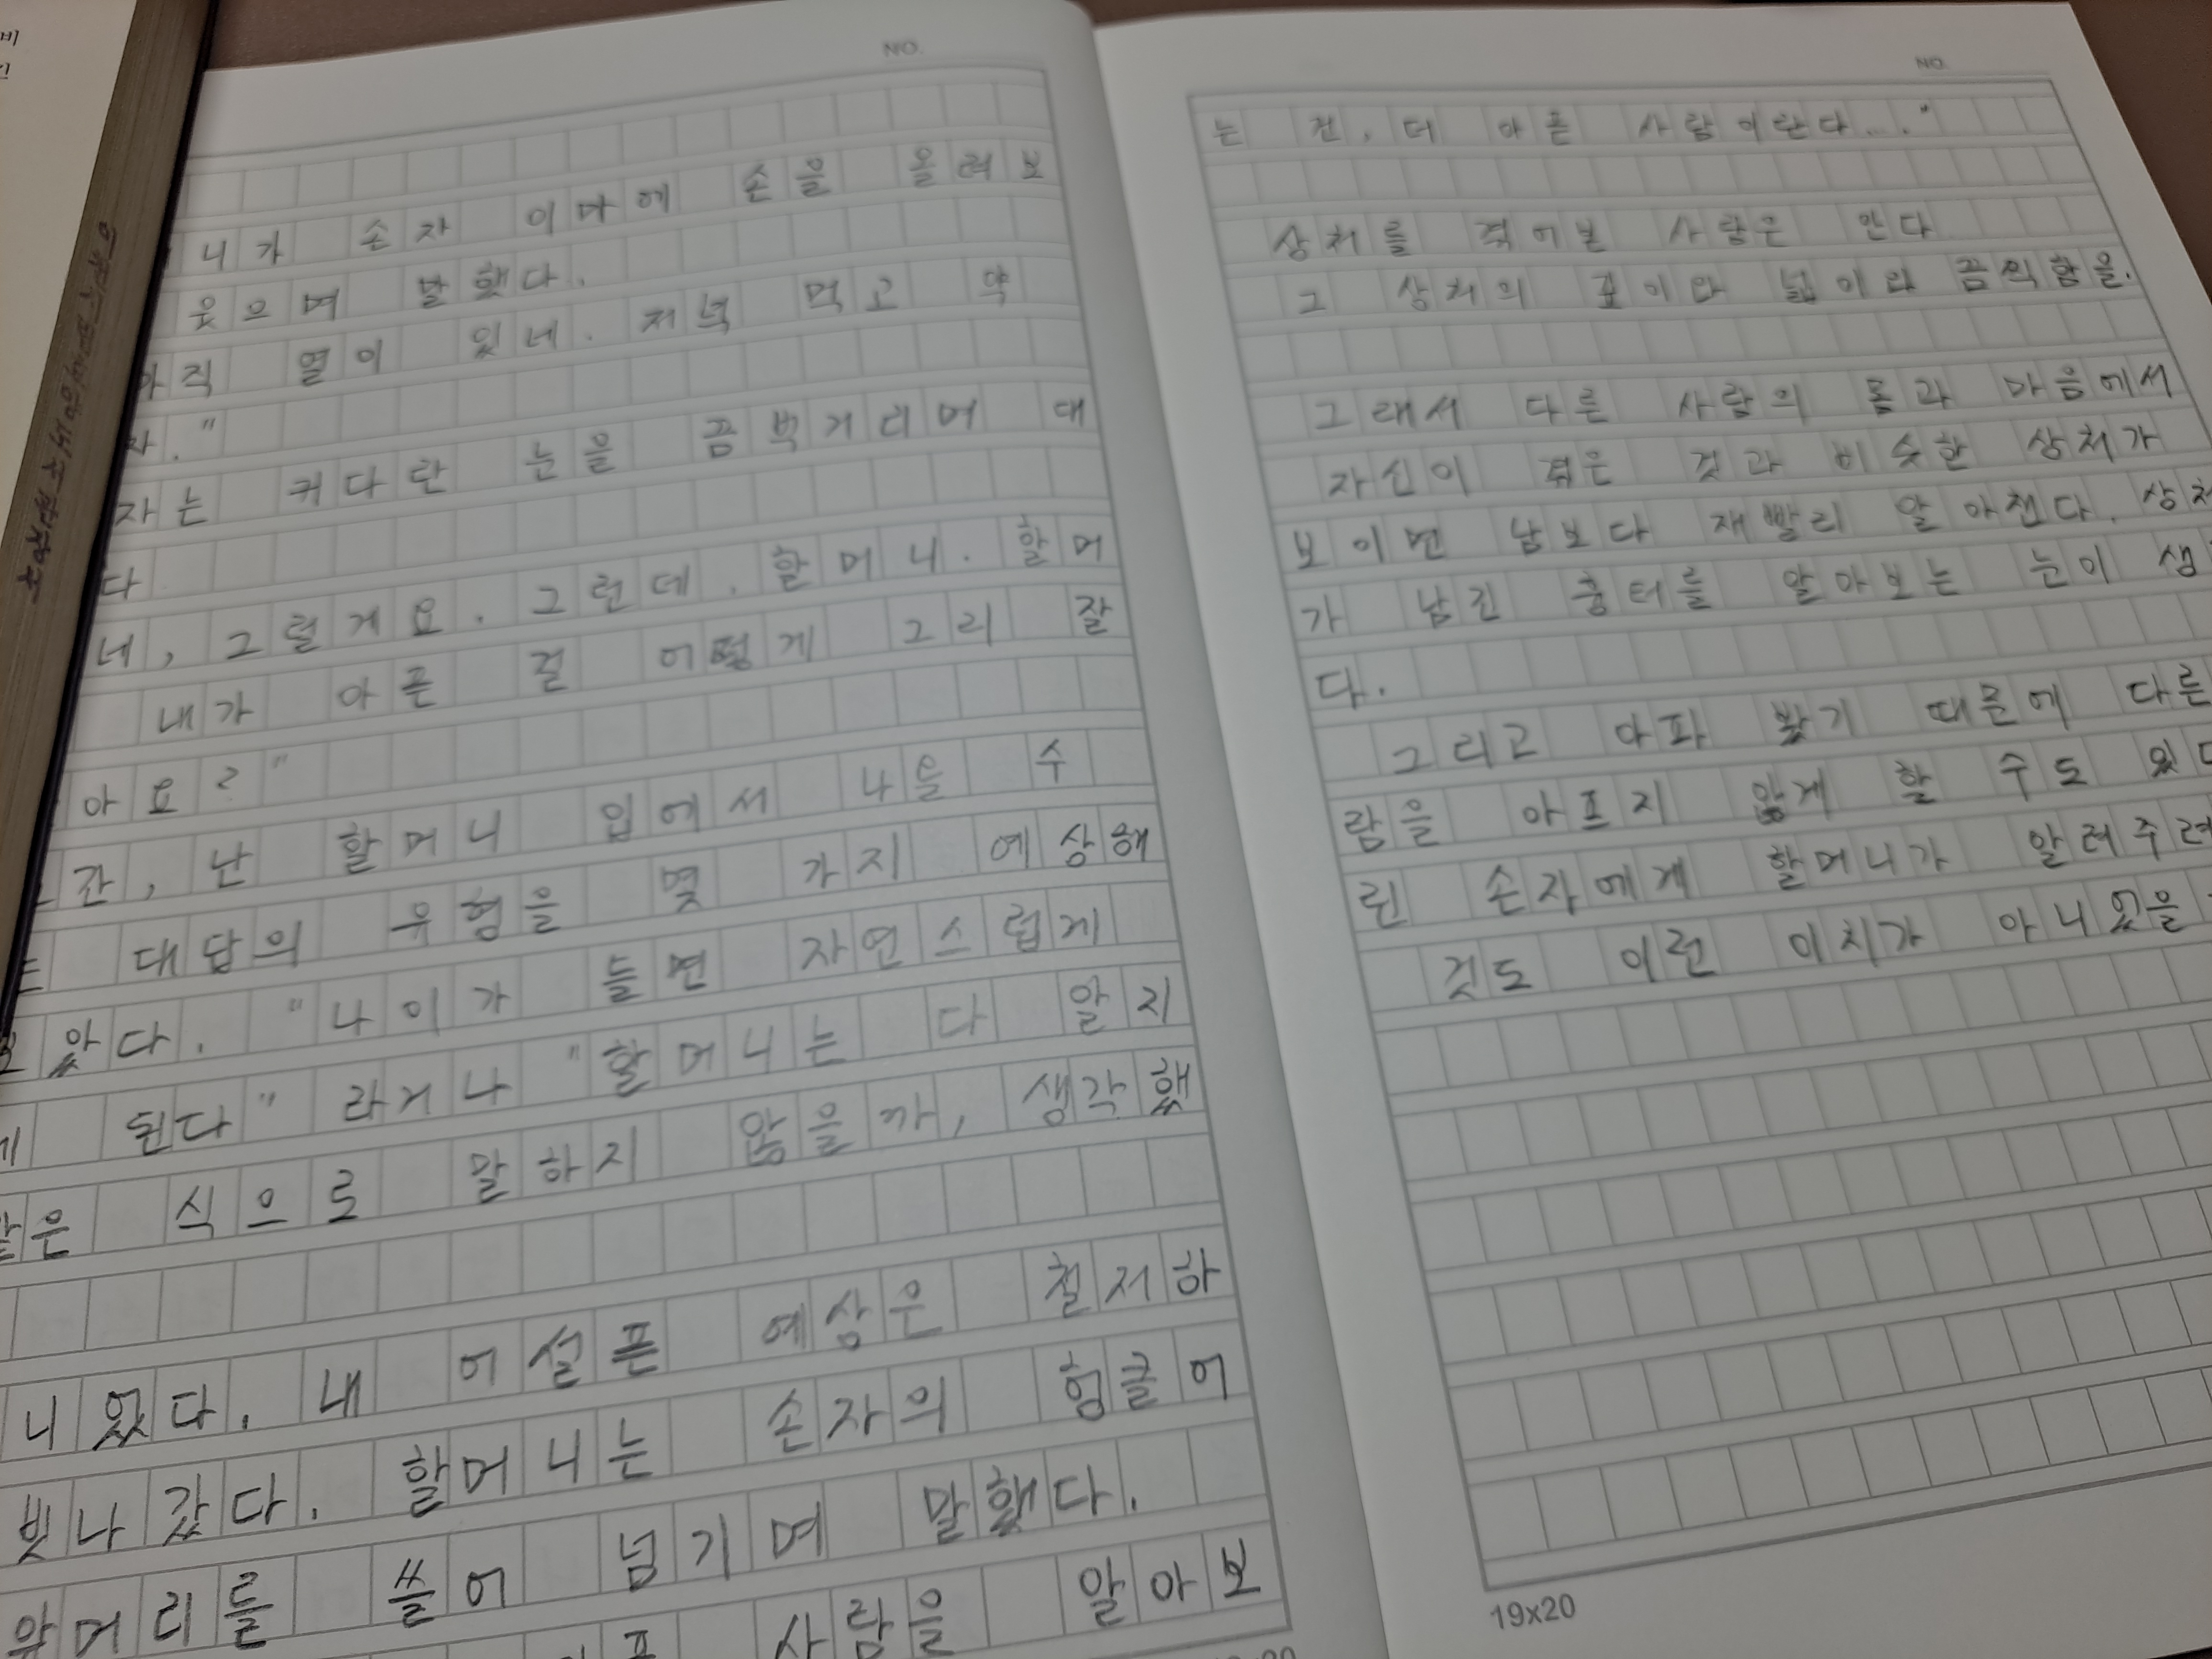 NO.
니가 손자 이마에 손을 올려보
웃으며 말했다.
아직 열이 있네. 저녁 먹고 약
자."
자는 커다란 눈을 끔벅거리며 대
다
네, 그럴게요. 그런데. 할머니. 할머
내가 아픈 걸 어떻게 그리 잘
아요?"
간, 난 할머니 입에서 나올 수
대답의 유형을 몇 가지 예상해
았다. "나이가 들면 자연스럽게
게 된다" 라거나 "할머니는 다 알지
같은 식으로 말하지 않을까, 생각했
니었다. 내 어설픈 예상은 철저하
빗나갔다. 할머니는 손자의 헝클어
앞머리를 쓸어 넘기며 말했다.
사람을 알아보
NO.
는 건, 더 아픈 사람이란다...."
상처를 겪어본 사람은 안다
그 상처의 깊이와 넓이와 끔찍함을.
그래서 다른 사람의 몸과 마음에서
자신이 겪은 것과 비슷한 상처가
보이면 남보다 재빨리 알아챈다. 상처
가 남긴 흉터를 알아보는 눈이 생
다.
그리고 아파 봤기 때문에 다른
람을 아프지 않게 할 수도 있다
린 손자에게 할머니가 알려주려
것도 이런 이치가 아니었을
19x20